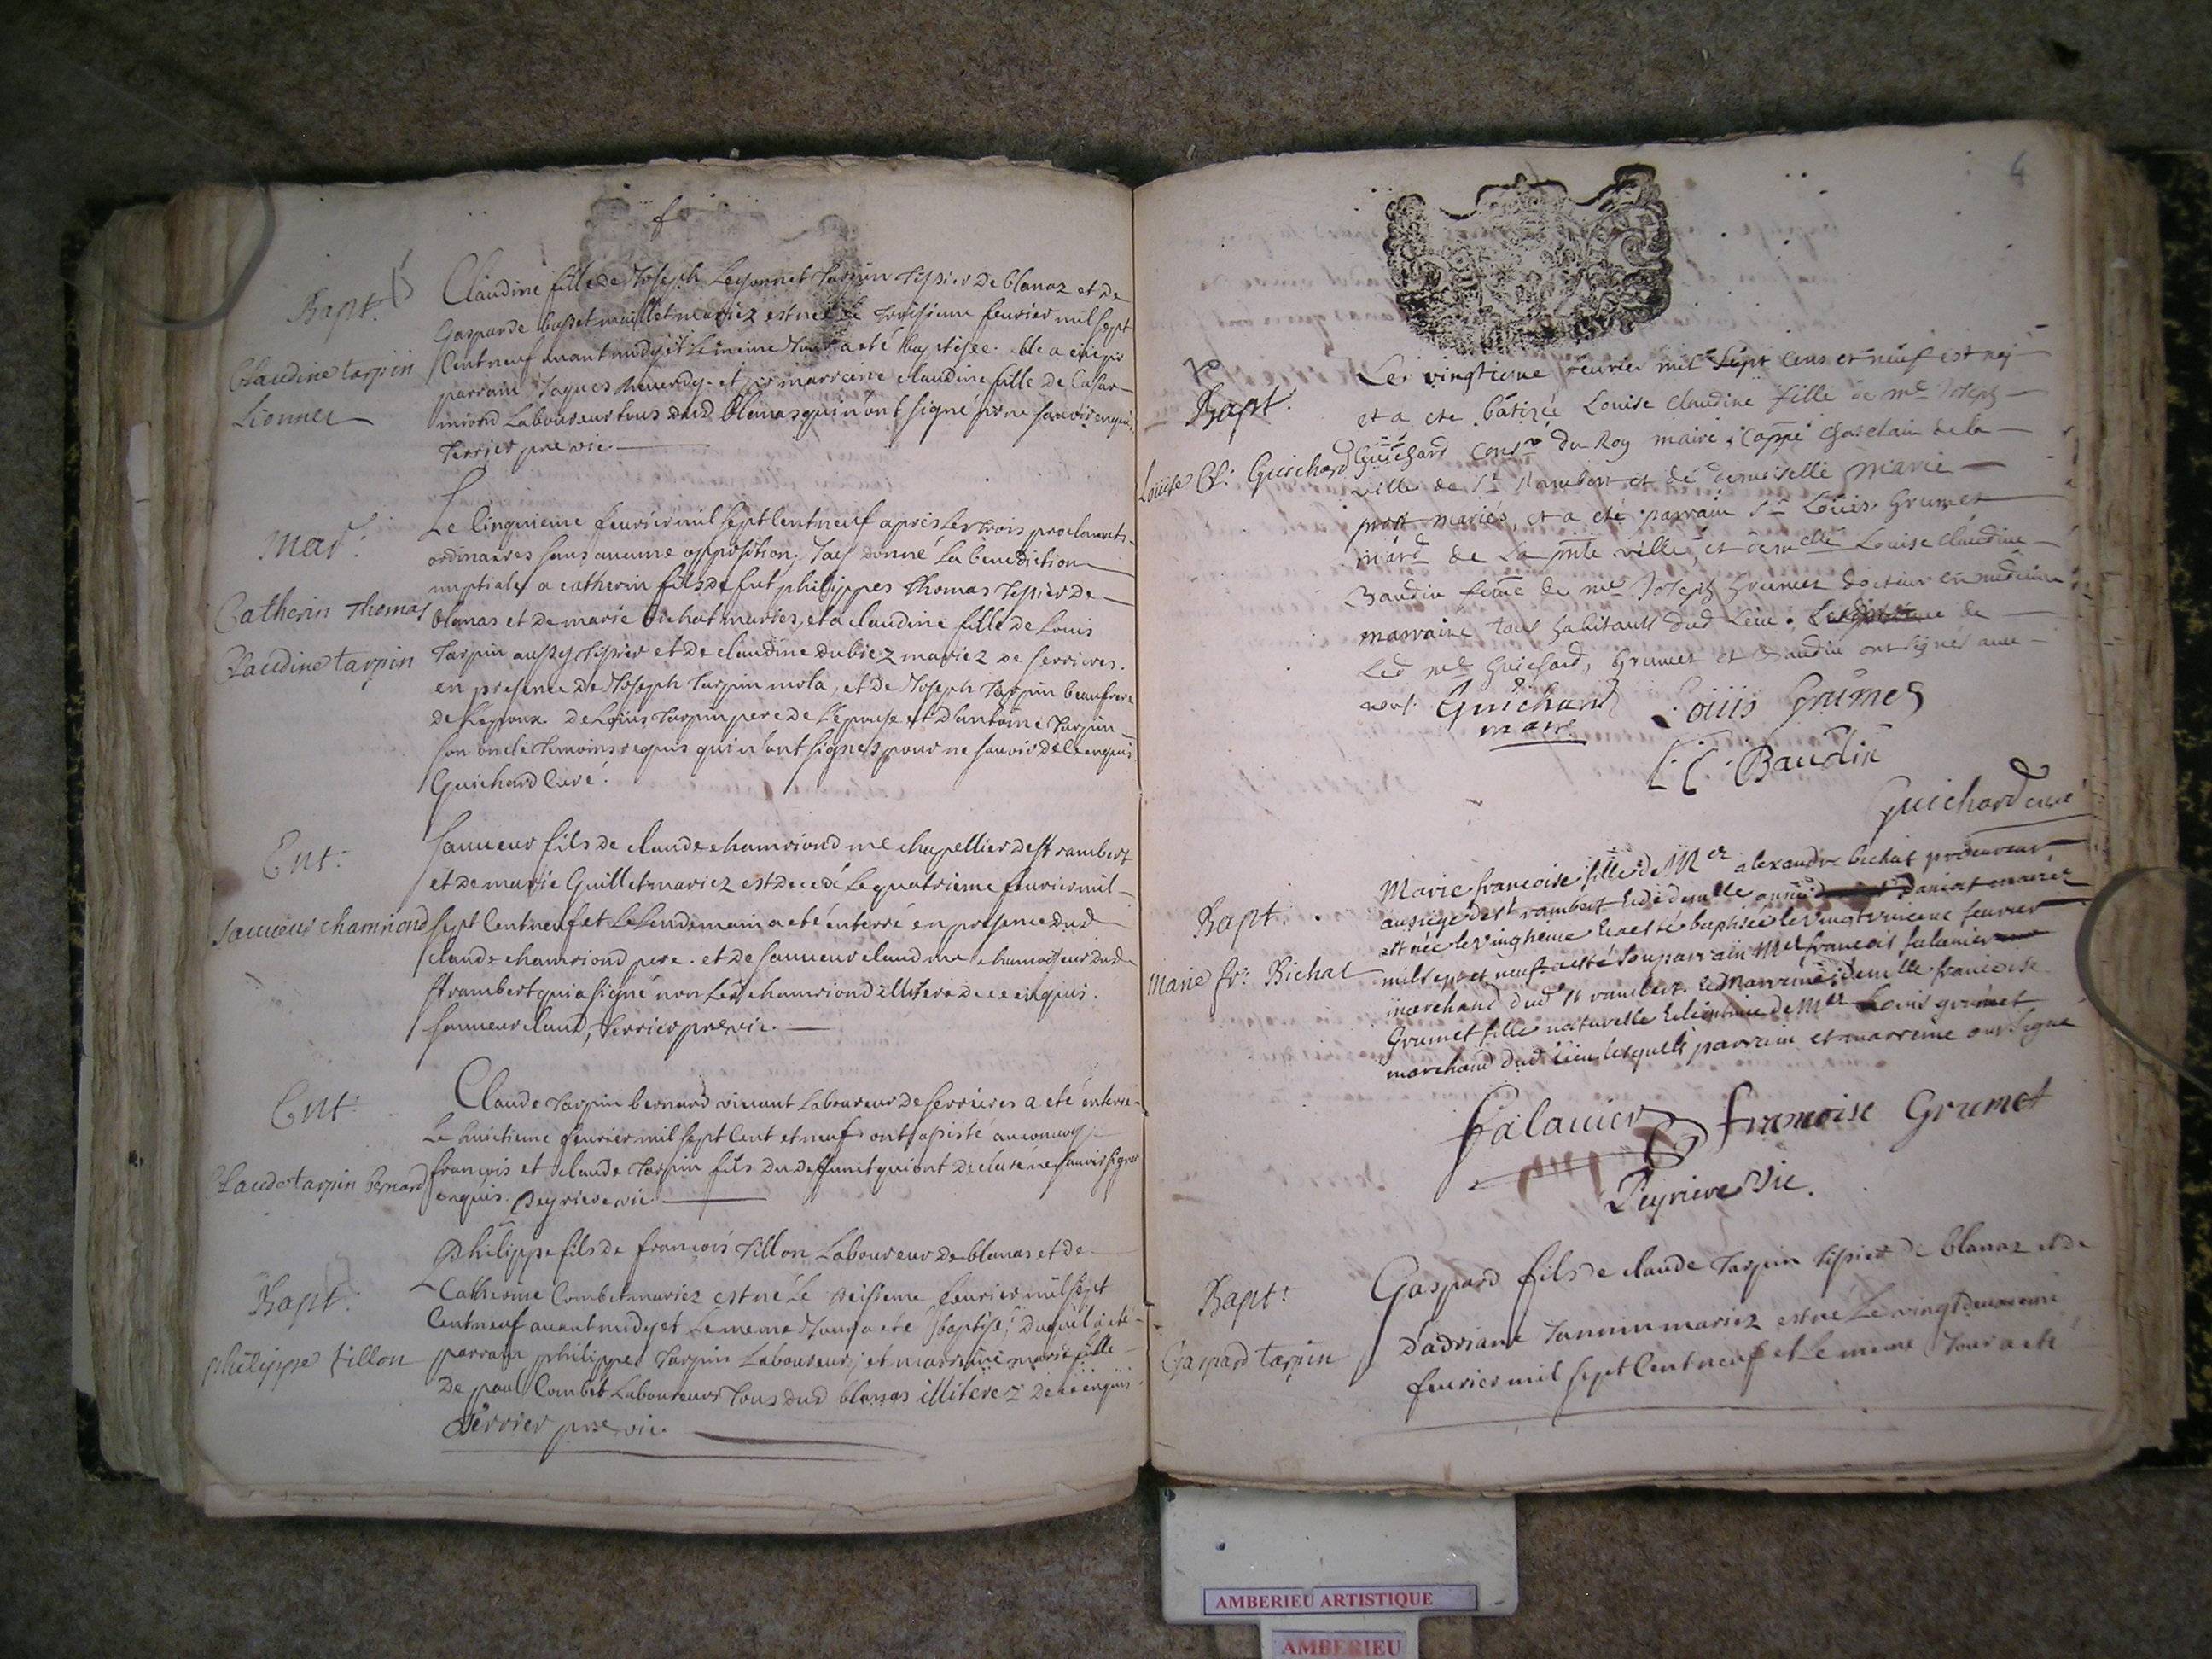 Bapt.
Claudine tarpin
Lionnet
Claudine fille de Joseph Leyonnet tarpin tissier de blanaz et de
Gasparde basset mariez est née le troisieme feurier mil sept
Cent neuf auant midy et le meme Jour a eté baptisée. elle a eu pr
parrain Jaques et pr marreine claudine fille de
Laboureur tous dud blanas qui n'ont signé pr ne sauoir enquis
terrier pre vic.
Mar.
Catherin Thomas
Claudine tarpin
Le Cinquieme feurier mil sept Cent neuf apres Les trois proclamats
ordinaires sans aucune opposition, Jay donné La benediction
nuptiale a catherin fils de fut philippes Thomas tissier de
blanas et de marie bichat mariez, et a claudine fille de Louis
tarpin aussy tissier et de claudine dubiez mariez de serrieres.
en presence de Joseph tarpin mola, et de Joseph tarpin beaufrere
de Lepoux. de Louis tarpin pere de L'epouse et d'antoine tarpin
son oncle temoins requis qui n'ont signes pour ne sauoir de ce enquis
Guichard Curé.
Ent.
Sauueur chamriond
Sauueur fils de claude chamriond me chapellier de st rambert
et de marie Guillet mariez est decedé Le quatrieme feurier mil
sept Cent neuf et Le Lendemain a eté enterré en presence dud
claude chamriond pere. et de sauueur claud me dud
st rambert qui a signé non Led chamriond illiteré de ce enquis.
sauueur claud, terrier pre vic.
Ent.
Claude tarpin bernard
Claude tarpin bernard viuant Laboureur de serrieres a eté enterré
Le huictieme feurier mil sept Cent et neuf ont assisté au conuoy
françois et claude tarpin fils du deffunct qui ont declaré ne sauoir signer
enquis. Peyriere vic
Bapt.
philippe tillon
philippe fils de françois tillon Laboureur de blanas et de
Catherine Combet mariez est né Le seisieme feurier mil sept
Cent neuf auant midy et Le meme Jour a eté baptisé, Duquel a eté
parrain philippe tarpin Laboureur; et marreine marie fille
de paul Combet Laboureur tous dud blanas illiterez de ce enquis
terrier pre vic.
4
Bapt.
Louise Cl. Guichard
Le vingtieme feurier mil sept cens et neuf est née
et a ete batizée Louise Claudine fille de me Joseph
Guichard Consr du Roy maire, Cappe chatelain de la
ville de St Rambert et de demoiselle Marie
prost mariés, et a eté parrain Sr Louis Grumet
mard de La pnte ville, et demelle Louise Claudine
Baudin feme de me Joseph Grumet docteur en medecine
marraine tous habitants dud Lieu. de
Led me Guichard, Grumet et Baudin ont signes auec
nous. Guichard Louis Grumet
maire
L C Baudin
Guichard curé
Bapt.
Marie fr. Bichat
Marie francoise fille de Mer alexandre bichat procureur
au siege de st rambert et de demlle mariés
est née le vingtieme et a esté baptisée le vingt unieme feurier
mil sept et neuf a esté son parrain Mer francois falauier
marchand dud st rambert. et marreine demlle francoise
Grumet fille naturelle et legitime de Mer Louis grumet
marchand dud lieu lesquels parrain et marreine ont signé
falauier francoise Grumet
Peyriere Vic.
Bapt.
Gaspard tarpin
Gaspard fils de claude tarpin tissier de blanaz et de
d'adriane Jannin mariez est né Le vingt deuxieme
feurier mil sept Cent neuf et Le meme Jour a eté
AMBERIEU ARTISTIQUE
AMBERIEU